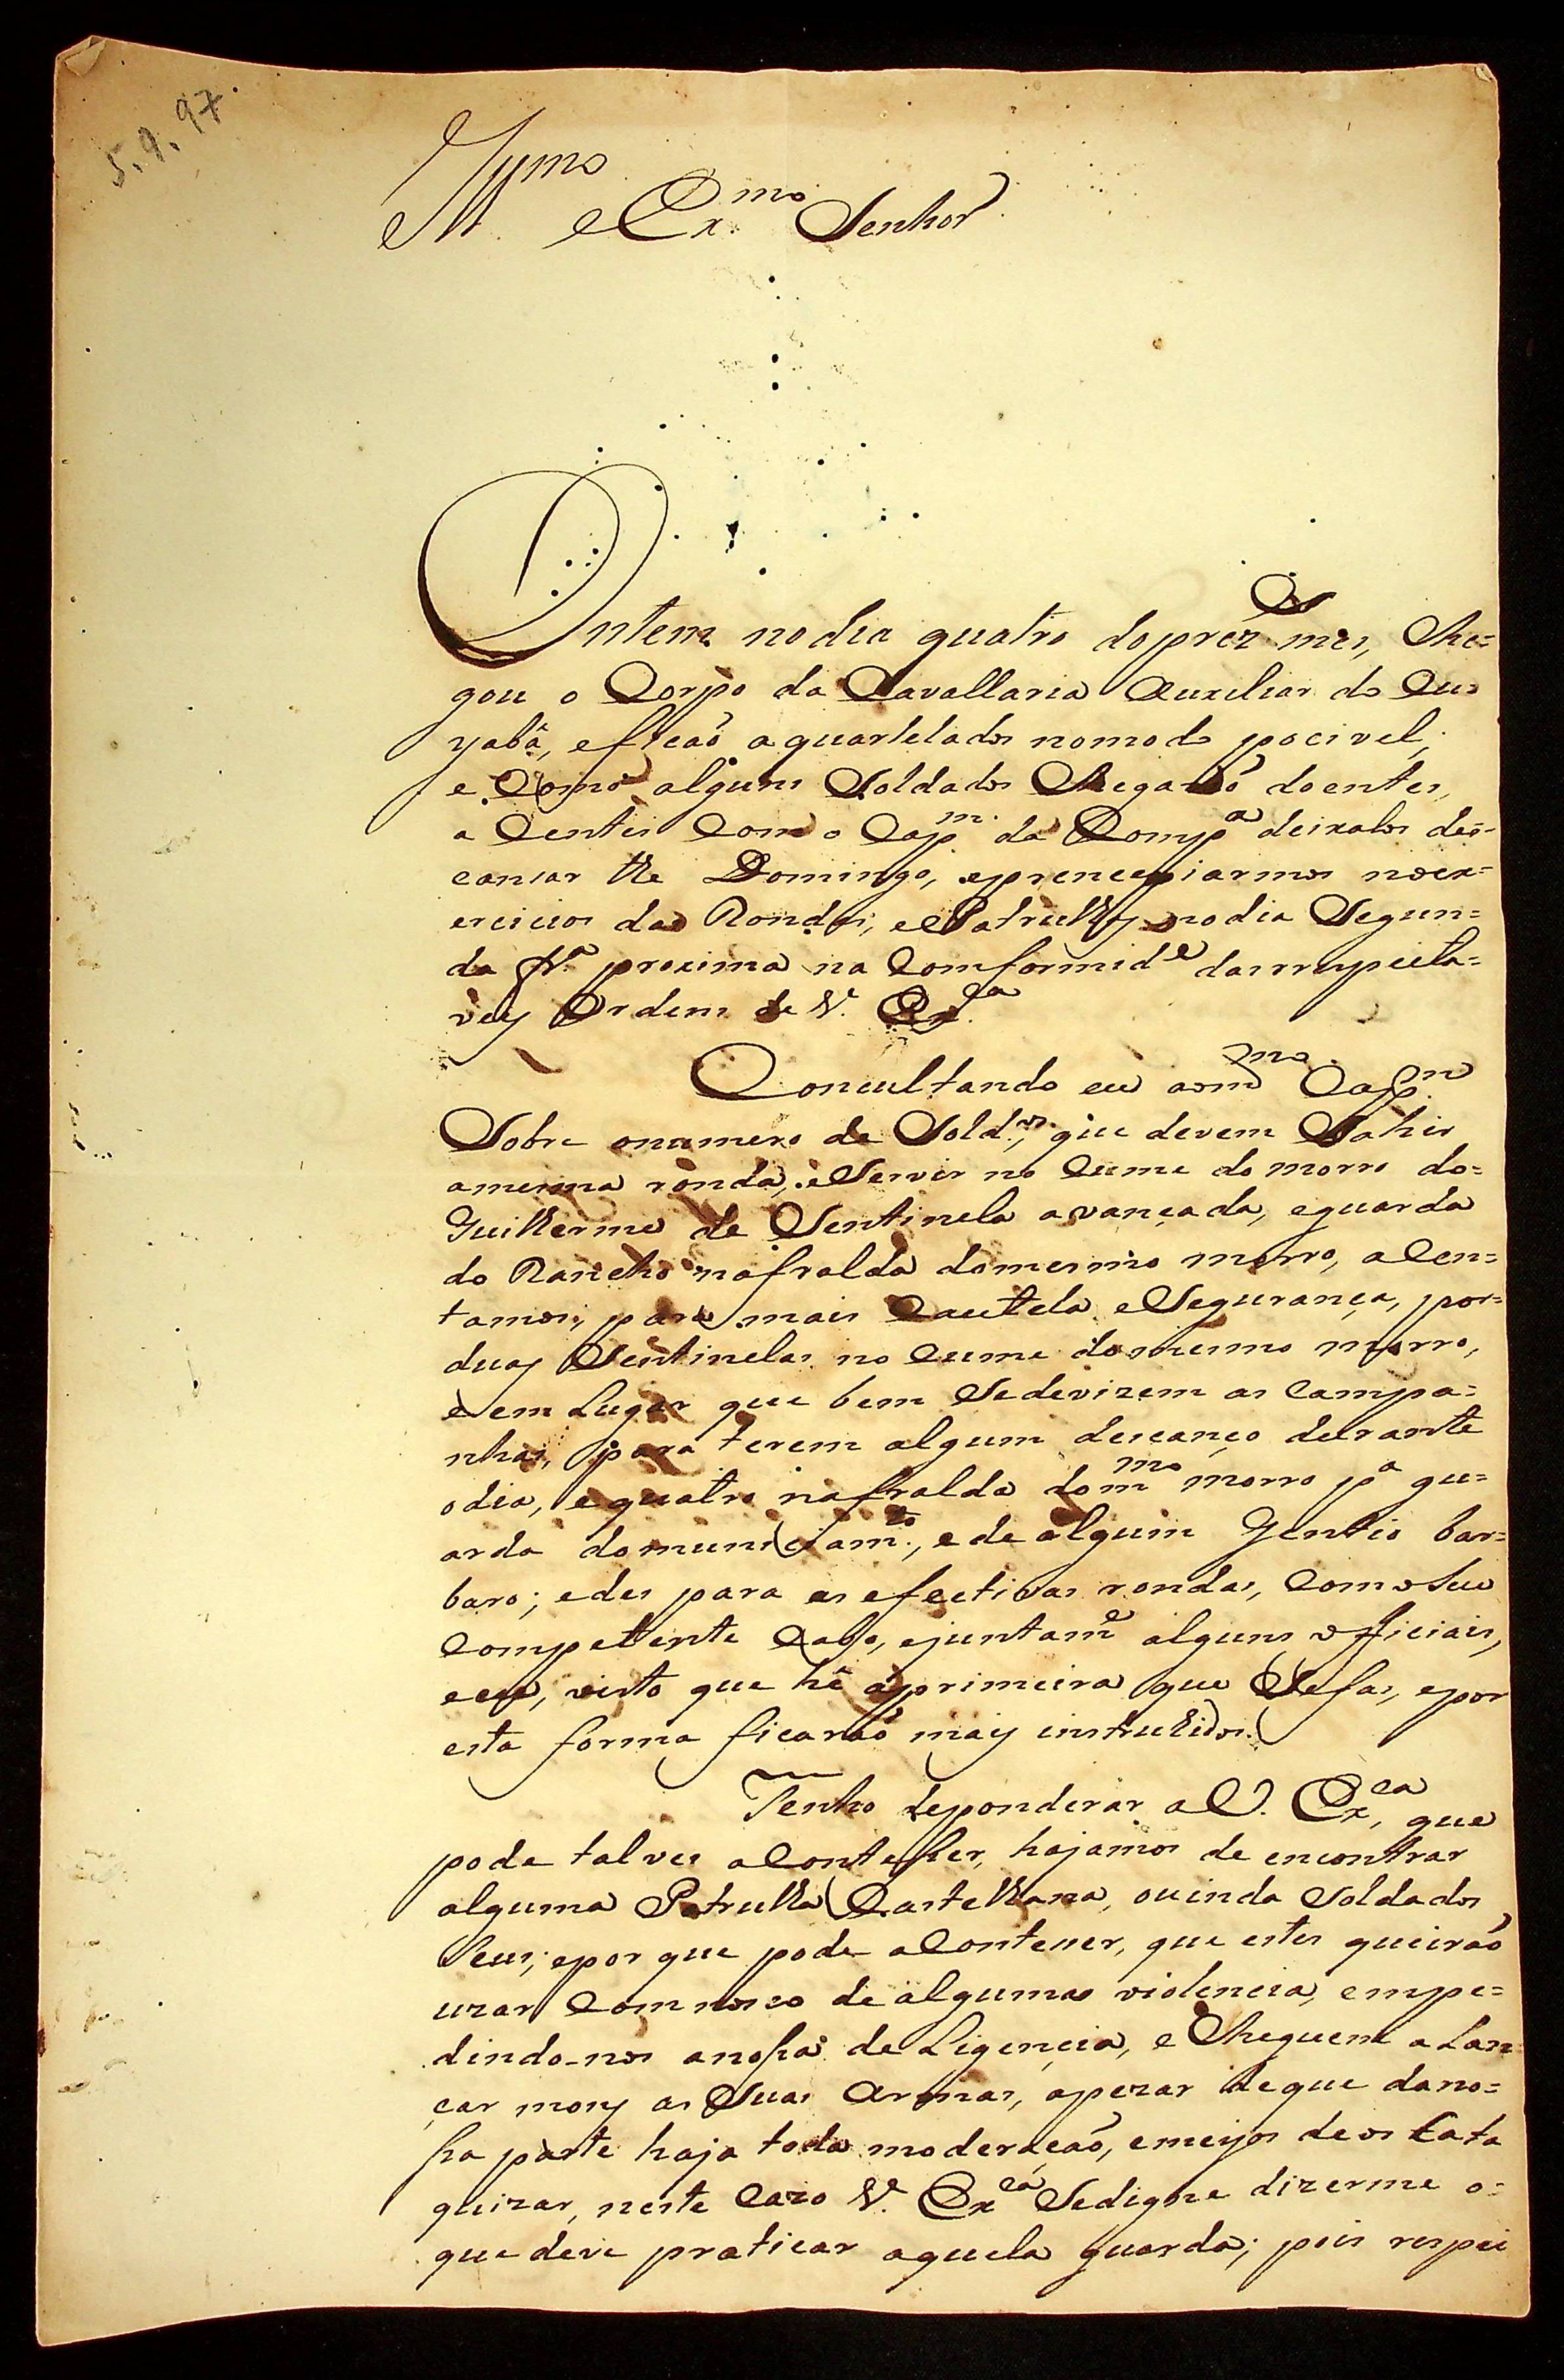 5.9.97.
Ill.mo e Ex.mo Senhor
Ontem no dia quatro doprez.e mes, Che=
gou o Corpo da Cavallaria Auxiliar do Cu=
yabá, eficaõ aquartelados nomodo pocivel,
e Como alguns Soldados Chegaraõ doentes,
acentei Com o Cap.m da Comp.a deixalos des=
cansar the Domingo, eprencepiarmos noex=
ercicios das Rondas, ePatrulhas nodia Segun=
da fr.a proxima na Comformid.e dasrrespeita=
veis Ordens de V. Ex.ca
Concultando eu aom.mo Cap.m
Sobre onumero de Sold.os, que devem Sahir
amesma ronda, eServir no Cume do morro do=
Guilherme de Sentinela avançada, eguarda
do Rancho nafralda domesmo morro, aCen=
tamos, para mais Cautela eSegurança, por=
duas Sentinelas no Cume domesmo morro,
e em Lugar que bem Sedevizem as Campa=
nhas, para terem algum descanço durante
odia, equatro nafralda dom.mo morro p.a gu=
arda domuniciam.to, ede algum Gentio bar=
baro; edes para as efectivas rondas, Com oSeu
Competente Cabo, ejuntam.e alguns officiais,
eeu, visto que hé aprimeira que Sefas, epor
esta forma ficaraõ mais instruhidos.
Tenho deponderar aV. Ex.ca, que
pode talves aContesser, hajamos de encontrar
alguma Patrulha Castelhana, ouinda Soldados
Seus; epor que pode aContecer, que estes queiraõ
uzar Comnosco de alguma violencia, empe=
dindo-nos anossa deLigencia, e Cheguem aLan
çar maoz as Suas Armas, apezar deque dano=
ssa parte haja toda moderaçaõ, emeyos deos Cata
quizar, neste Cazo V. Ex.ca Sedigne dizerme o=
que deve praticar aquela guarda; pois respei